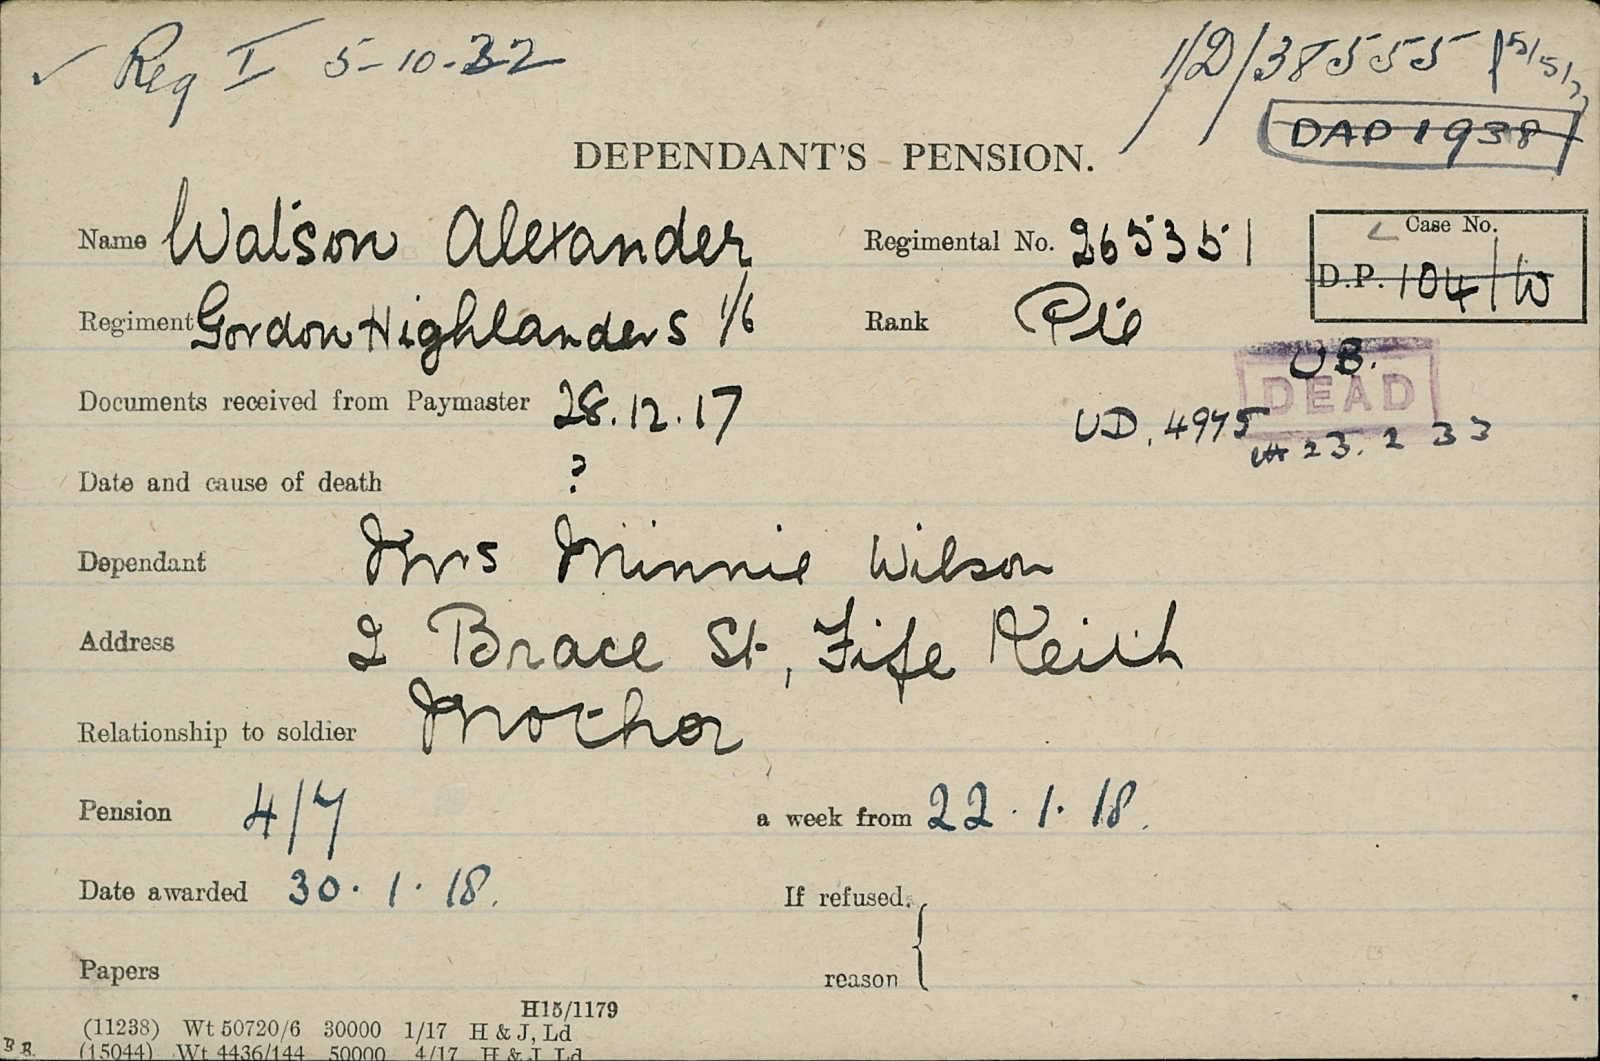 ✓ Reg I 5-10-32 1/D/38555
DAD 1938
DEPENDANT'S PENSION.
Name Watson Alexander Regimental No. 265351 Case No.
D.P. 104/W
Regiment Gordon Highlanders 1/6 Rank Pte
UB.
DEAD
Documents received from Paymaster 28.12.17 UD. 4975
23.2 33
Date and cause of death ?
Dependant Mrs Minnie Wilson
Address 2 Brace St, Fife Keith
Relationship to soldier Mother
Pension 4/7 a week from 22.1.18.
Date awarded 30.1.18. If refused,
Papers reason
H15/1179
(11238) Wt 50720/6 30000 1/17 H & J, Ld
(15044) Wt 4436/144 50000 4/17 H & J, Ld